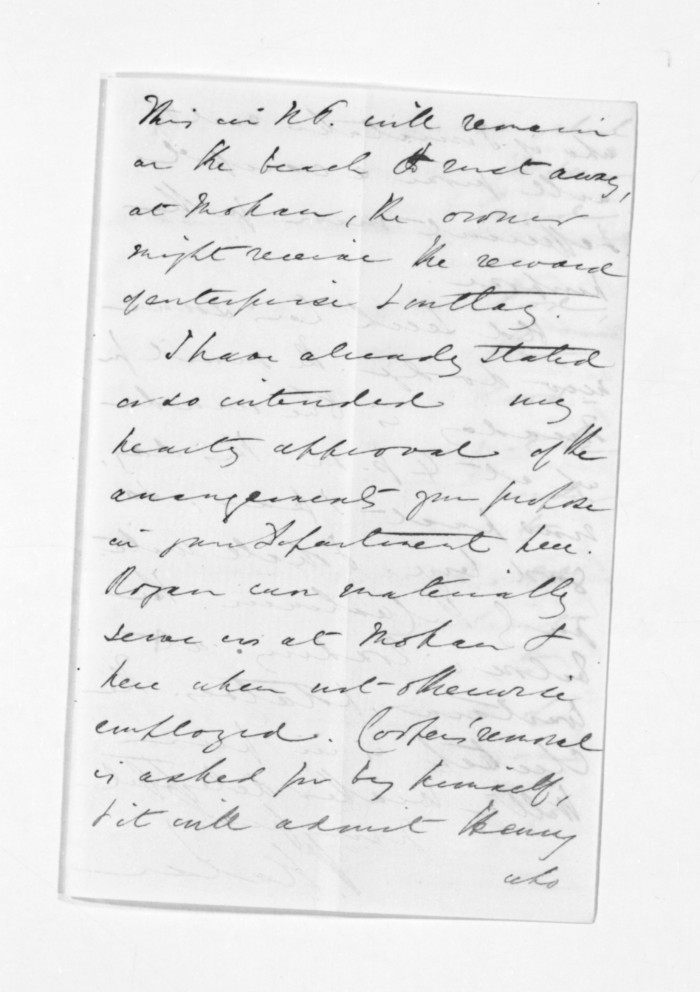 This in N.P. will remain
on the beach to rust away,
at Mohau, the owner
might receive the reward
of enterprise & outlay.
I have already stated
or so intended my
hearty approval of the
arrangements you propose
in your Department here.
Rogan can materially
serve us at Mohau &
here when not otherwise
employed. removal
is asked for by himself,
& it will admit Henry
who